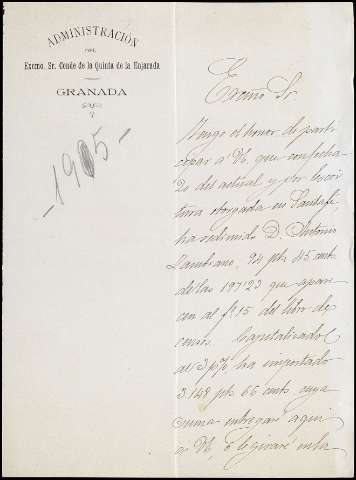 ADMINISTRACIÓN
DEL
Excmo. Sr. Conde de la Quinta de la Enjarada
GRANADA
-1905-
Excmo Sr.
Tengo el honor de parti
cipar a V. que con fecha
20 del actual y por escri
tura otorgada en Santafé,
ha redimido D. Antonio
Zambrano, 94 pts 45 cents
de las 197'23 que apare
cen al fº 15 del libro de
censos. Capitalizado
al 3 p% ha importado
3.148 pts 66 cents cuya
suma entregaré aquí
a V, o le giraré en la